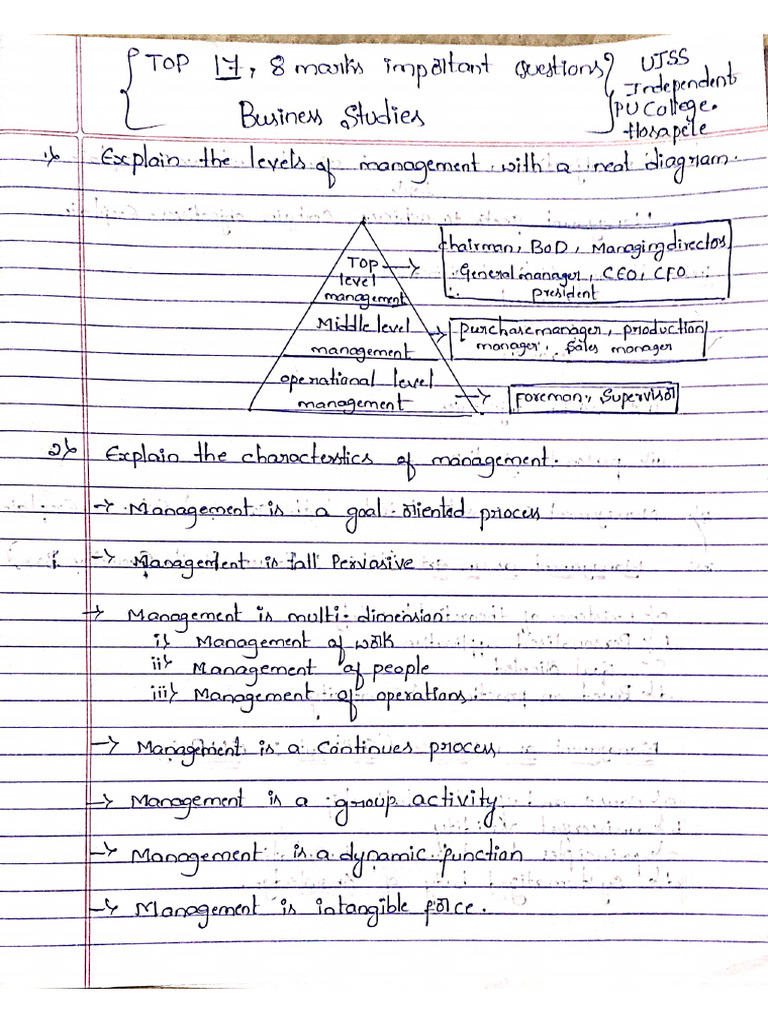 TOP 17, 8 marks important questions
Business Studies
UJSS
Independent
PU College.
Hosapete
1) Explain the levels of management with a neat diagram.
TOP
level
management
Chairman, BoD, Managing directors
General manager, CEO, CFO
president
Middle level
management
purchase manager, production
manager, Sales manager
operational level
management
Foreman, Supervisor
2) Explain the characterstics of management.
→ Management is a goal oriented process
i. → Management is fall Pervasive
→ Management is multi-dimension
i) Management of work
ii) Management of people
iii) Management of operations.
→ Management is a continues process
→ Management is a group activity
→ Management is a dynamic function
→ Management is intangible force.